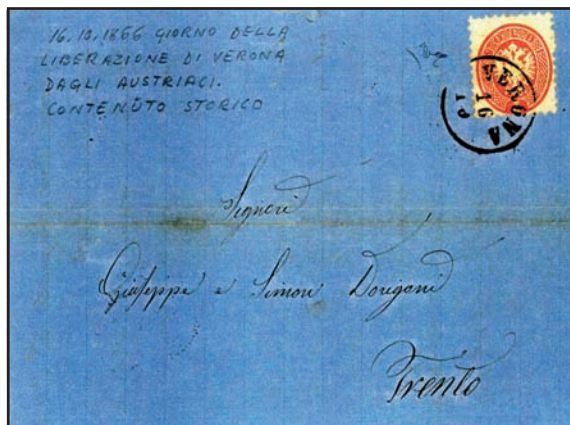 16.10.1866 GIORNO DELLA
LIBERAZIONE DI VERONA
DAGLI AUSTRIACI.
CONTENUTO STORICO
VERONA
16
Signori
Giuseppe e Simon Dorigoni
Trento